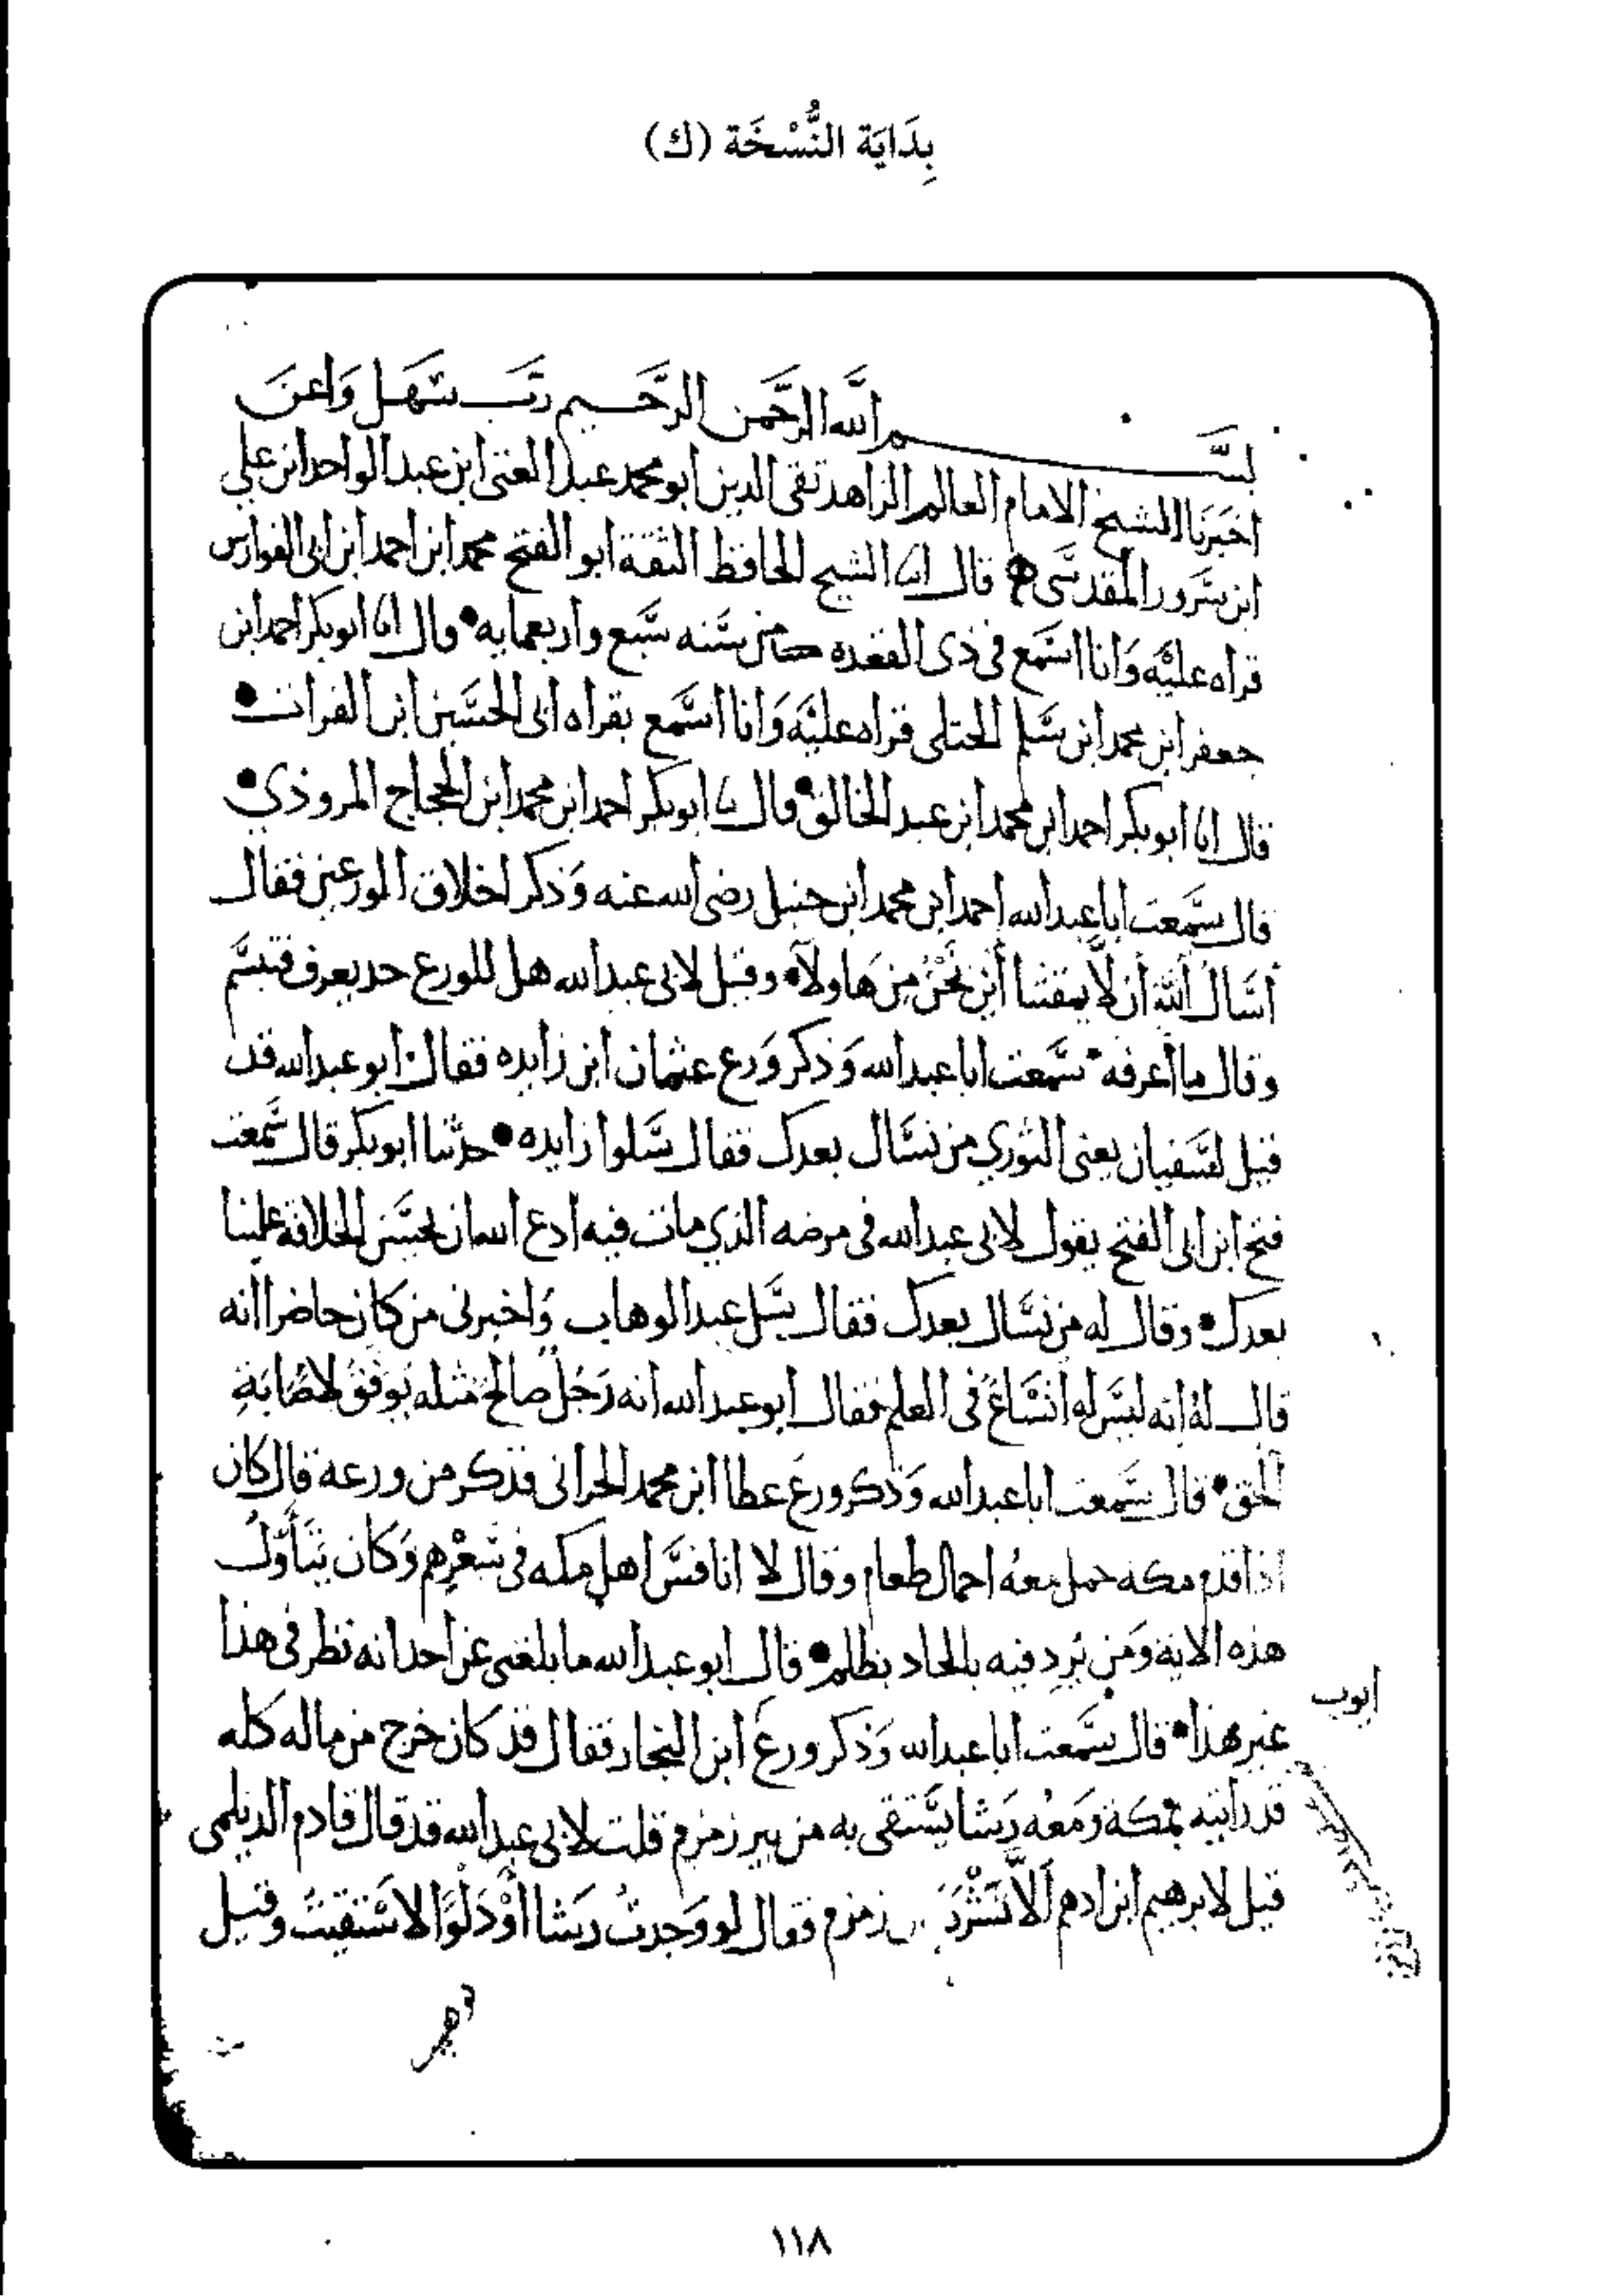 بِدَايَة النُّسْخَة (ك)
بسم الله الرحمن الرحيم رب سهل واعن
اخبرنا الشيخ الامام العالم الزاهد تقى الدين ابو محمد عبد الغنى ابن عبد الواحد ابن علي
ابن سرور المقدسى قال انا الشيخ الحافظ الثقة ابو الفتح محمد ابن احمد ابن ابى الفوارس
قراه عليه وانا اسمع فى ذى القعده من سنه سبع واربعمايه • قال انا ابو بكر احمد ابن
جعفر ابن محمد ابن سلم الختلى قراه عليه وانا اسمع بقراه ابى الحسن ابن الفرات •
قال انا ابو بكر احمد ابن محمد ابن عبد الخالق • قال نا ابو بكر احمد ابن محمد ابن الحجاج المروذي •
قال سمعت ابا عبد الله احمد ابن محمد ابن حنبل رضى الله عنه وذكر اخلاق الورعين فقال
أسال الله أن لا يمقتنا أين نحن من هاولآ • وقيل لابى عبد الله هل للورع حد يعرف فتبسم
وقال ما اعرفه • سمعت ابا عبد الله وذكر ورع عثمان ابن زايده فقال ابو عبد الله قد
قيل لسفيان يعنى الثوري من نسال بعدك فقال سلوا زايده • حدثنا ابو بكر قال سمعت
فتح ابن ابى الفتح يقول لابى عبد الله فى مرضه الذي مات فيه ادع الله ان يحسن الخلافة علينا
بعدك • وقال له من نسال بعدك فقال سل عبد الوهاب واخبرنى من كان حاضرا انه
قال له انه ليس له اتساع فى العلم فقال ابو عبد الله انه رجل صالح مثله يوفق لاصابة
الحق • قال سمعت ابا عبد الله وذكر ورع عطا ابن محمد الحرانى فذكر من ورعه قال كان
اذا قدم مكه حمل معه احمال طعام وقال لا انافس اهل مكه فى سعرهم وكان يتأول
هذه الاية ومن يرد فيه بالحاد بظلم • قال ابو عبد الله ما بلغنى عن احد انه نظر فى هذا
ايوب
غير هذا • قال سمعت ابا عبد الله وذكر ورع ابن النجار فقال قد كان خرج من ماله كله
قد رايته بمكة ومعه رشا يستقى به من بير زمزم قلت لابى عبد الله قد قال قادم الديلمى
قيل لابرهيم ابن ادهم ألا تشرب زمزم فقال لو وجدت رشا او دلوا لاستقيت وقيل
١١٨